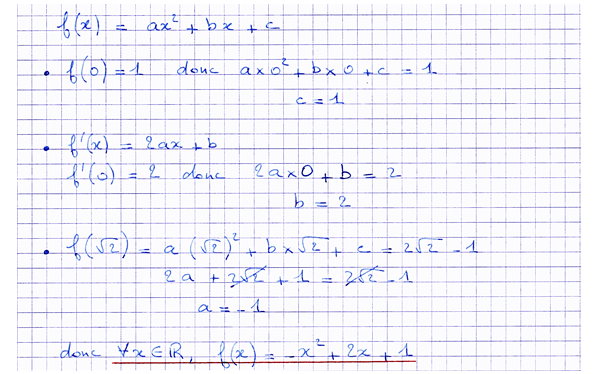 f(x) = ax² + bx + c
• f(0) = 1 donc a×0² + b×0 + c = 1
c = 1
• f'(x) = 2ax + b
f'(0) = 2 donc 2a×0 + b = 2
b = 2
• f(√2) = a (√2)² + b×√2 + c = 2√2 - 1
2a + 2√2 + 1 = 2√2 - 1
a = -1
donc ∀x∈ℝ, f(x) = -x² + 2x + 1